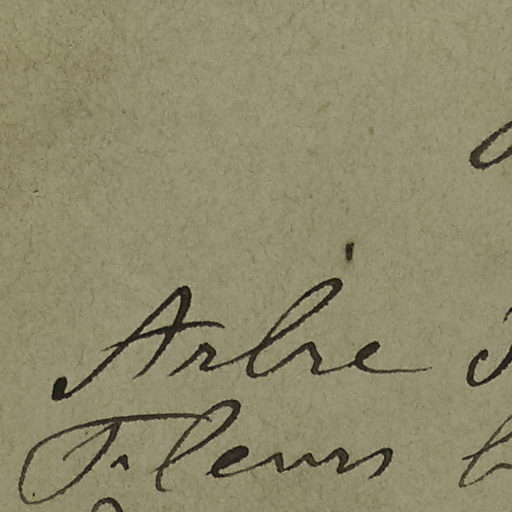 Arbre
Fleurs